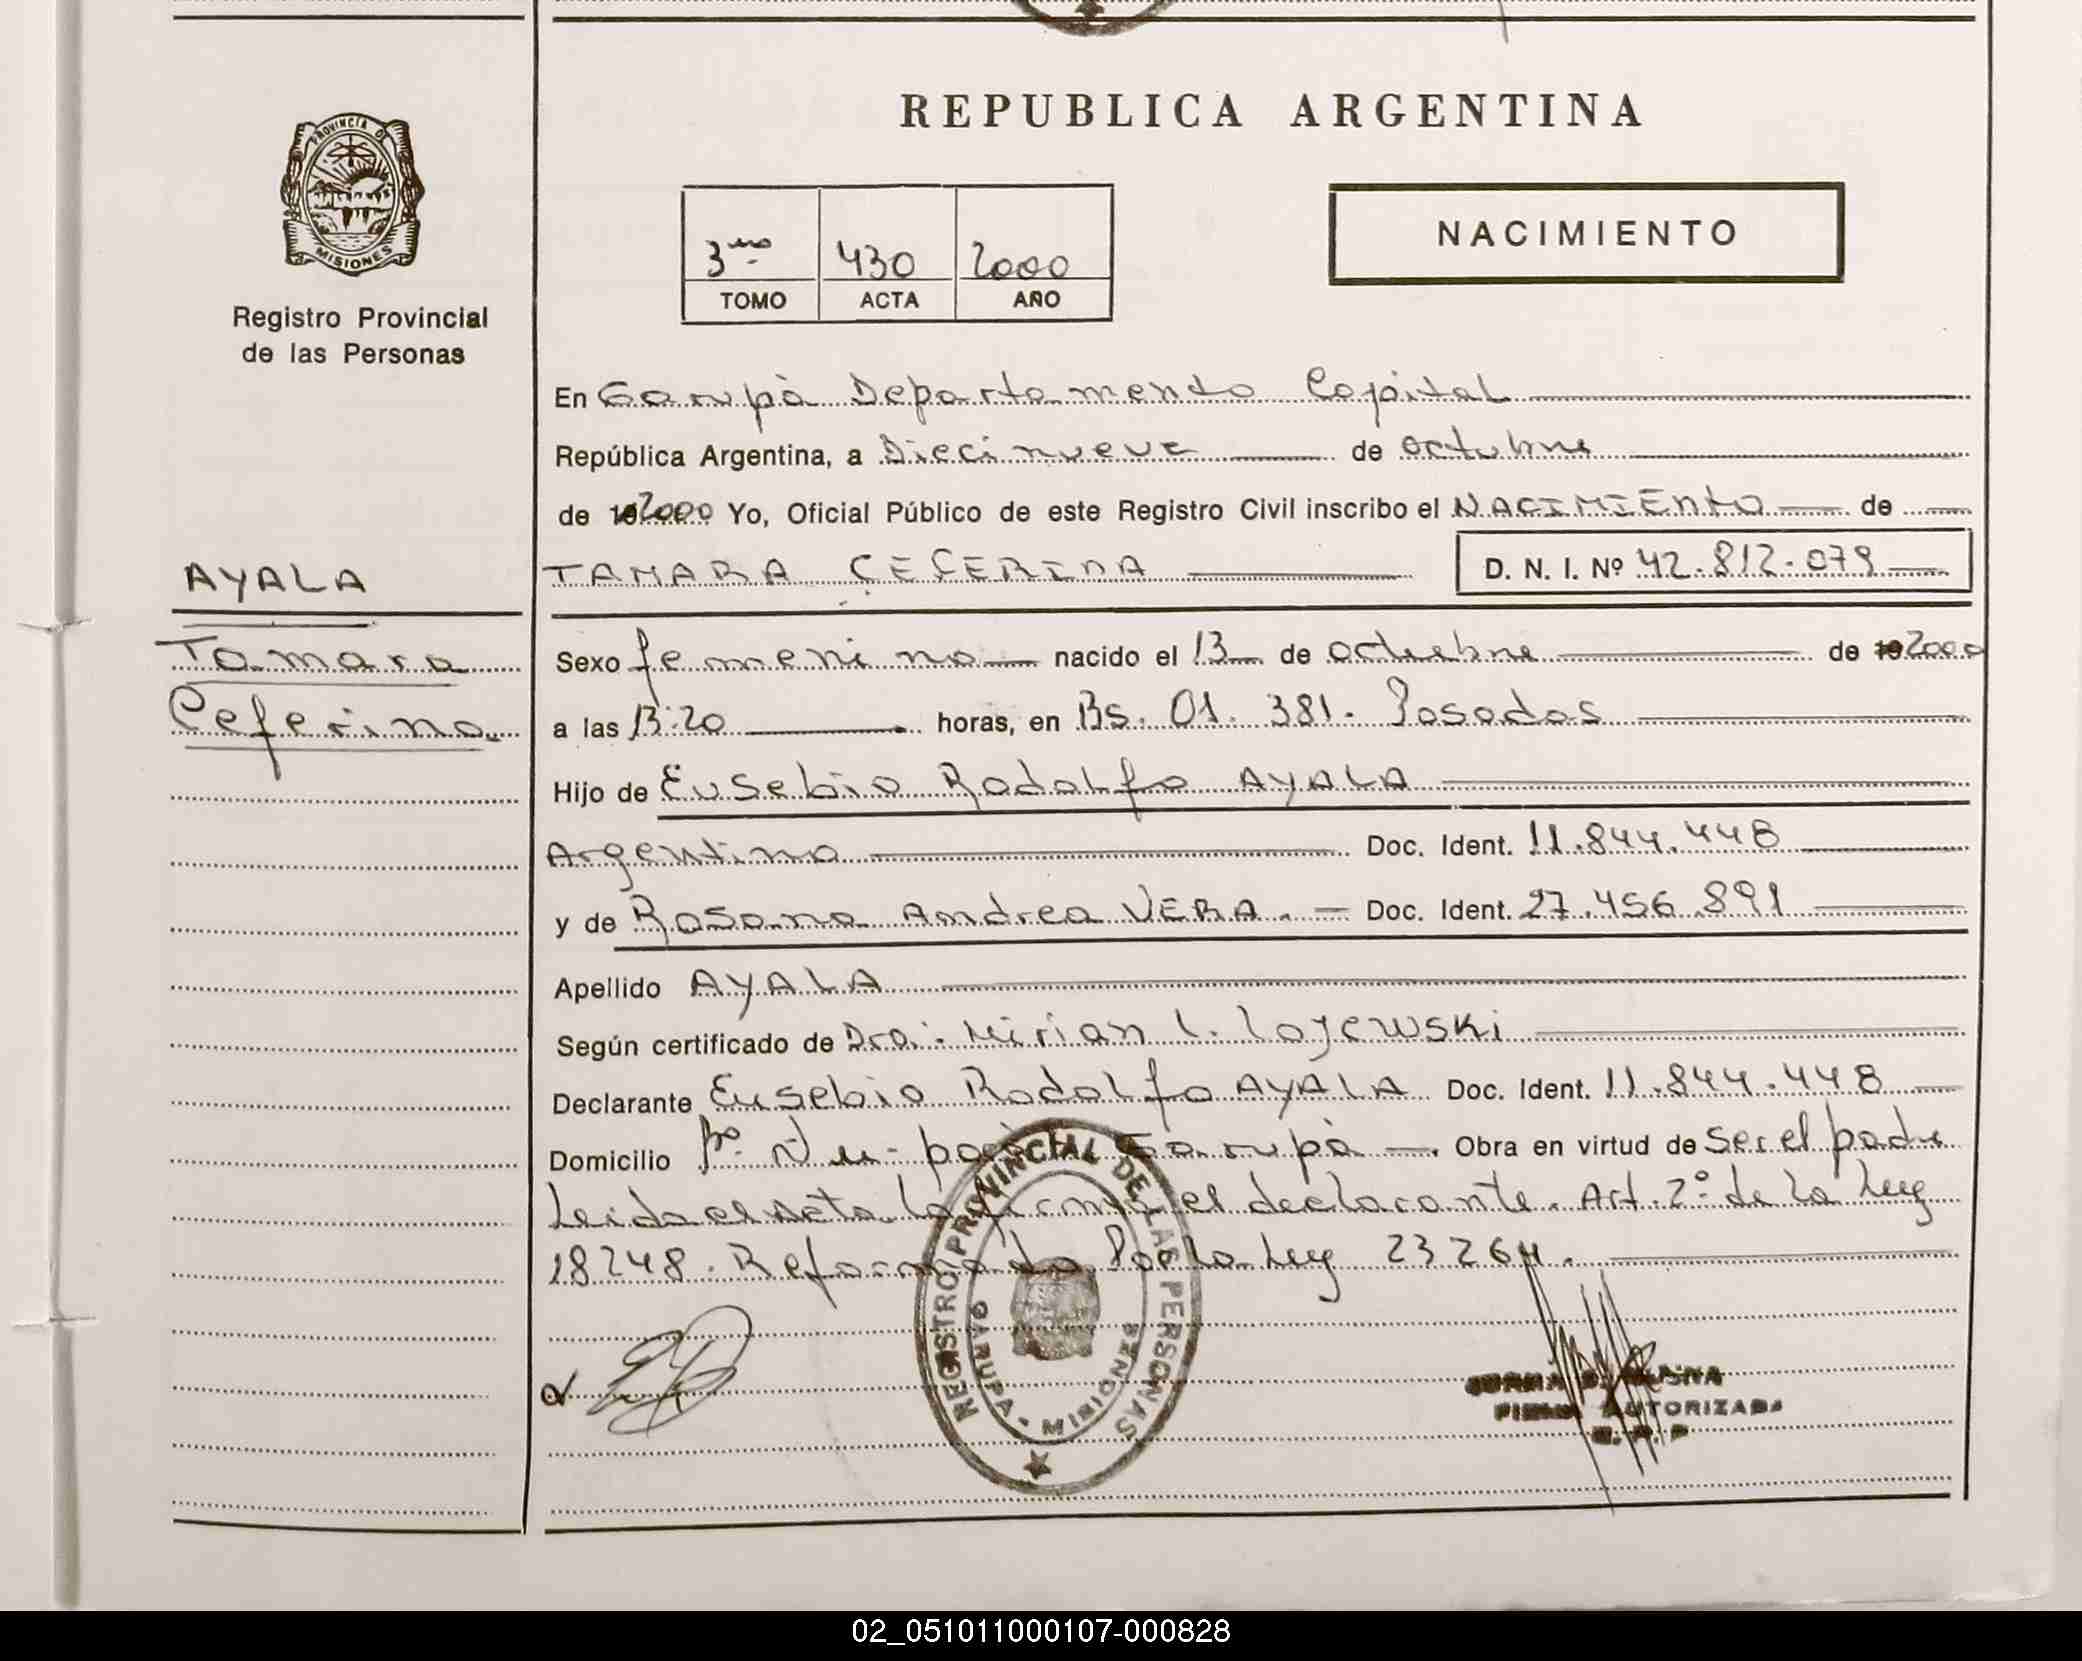 REPUBLICA ARGENTINA
PROVINCIA DE
MISIONES
Registro Provincial
de las Personas
3ro 430 2000
TOMO ACTA AÑO
NACIMIENTO
En Garupà Departamento Capital
República Argentina, a Diecinueve de octubre
de 2000 Yo, Oficial Público de este Registro Civil inscribo el NACIMIENTO de
AYALA
TAMARA CEFERINA D. N. I. Nº 42.812.079
Tamara
Ceferina.
Sexo femenino nacido el 13 de octubre de 2000
a las 13:20 horas, en Bs. 01. 381. Posadas
Hijo de Eusebio Rodolfo AYALA
Argentino Doc. Ident. 11.844.448
y de Rosana Andrea VERA. Doc. Ident. 27.456.891
Apellido AYALA
Según certificado de Dra. Mirian L. Lojewski
Declarante Eusebio Rodolfo AYALA Doc. Ident. 11.844.448
Domicilio Bº Ñu-porà Garupà. Obra en virtud de ser el padre
Leida el acta la firma el declarante. Art. 2º de la Ley
18248. Reformado Por la Ley 23264.
REGISTRO PROVINCIAL DE LAS PERSONAS
GARUPA - MISIONES
FIRMA AUTORIZADA
02_051011000107-000828